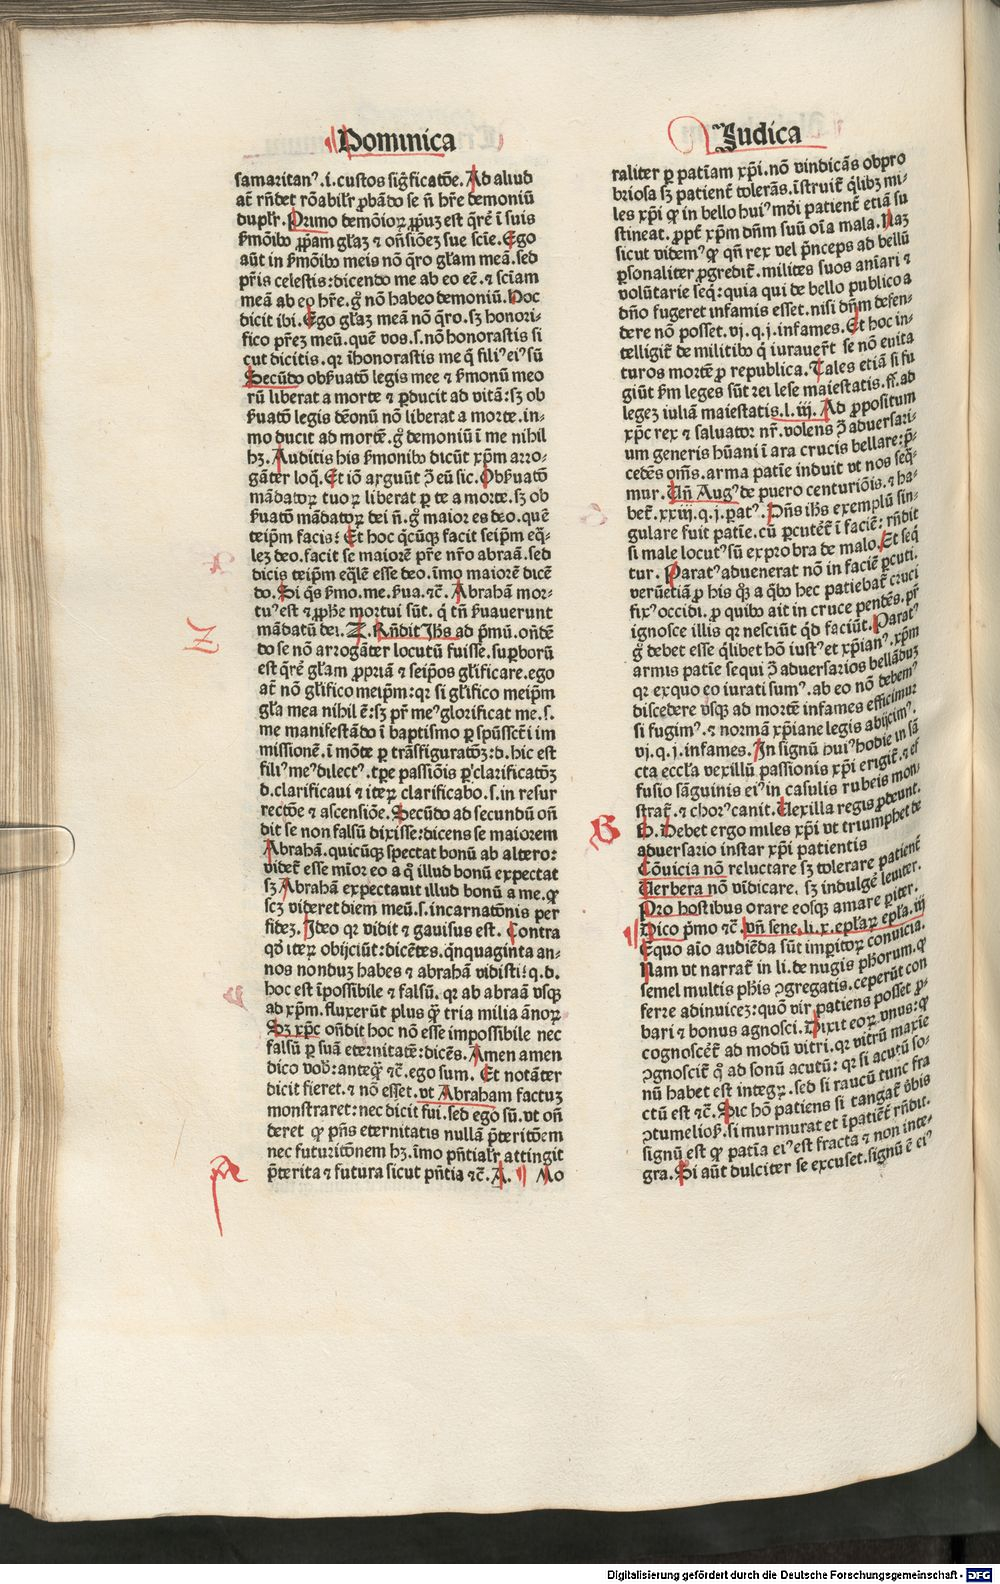 Dominica
samaritanꝰ.i.custos sigficatōe. Ad aliud
at̄ rn̄det rōabilr̄ ꝓbādo se n̄ hr̄e demoniū
duplr̄. Primo demōioꝝ ꝓpuꝫ est q̄rē̄ i suis
ẜmōibꝰ ꝓpam glaꝫ ⁊ on̄siōeꝫ sue scīe. Ego
aūt in ẜmōibꝰ meis nō q̄ro glam meā. sed
pr̄is celestis: dicendo me ab eo eē. ⁊ scīam
meā ab eo hr̄e. gͦ nō habeo demoniū. Hoc
dicit ibi. Ego glaꝫ meā nō q̄ro. sꝫ honori-
fico pr̄eꝫ meū. quē vos. s. nō honorastis si
cut dicitis. qr īhonorastis me q̄ filiꝰ eiꝰ sū
Secūdo obẜuatō legis mee ⁊ ẜmonū meo
rū liberat a morte ⁊ ꝑducit ad vitā: sꝫ ob
ẜuatō legis dēonū nō liberat a morte. im-
mo ducit ad mortē. gͦ demoniū ī me nihil
hꝫ. Auditis his ẜmonibꝰ dicūt xp̄m arro-
gāter loq̄. Et iō arguūt ꝯ eū sic. Obẜuatō
mādatoꝝ tuoꝝ liberat ꝑ te a morte. sꝫ ob
ẜuatō mādatoꝝ dei n̄. gͦ maior es deo. quē
teip̄m facis? Et hoc q̄cūqꝫ facit seip̄m eq̄-
leꝫ deo. facit se maiorē pr̄e nr̄o abraā. sed
dicis teip̄m eq̄lē esse deo. īmo maiorē dicē
do. Si q̄s ẜmo. me. ẜua. ⁊c̄. Abrahā mor-
tuꝰ est ⁊ ꝓphe mortui sūt. q̄ tn̄ ẜuauerunt
mādatū dei. Z. Rn̄dit Jhs ad pmū. on̄dē
do se nō arrogāter locutū fuisse. suꝑborū
est q̄rē̄ glam ꝓpriā ⁊ seip̄os glificare. ego
at̄ nō glifico meip̄m: qr si glifico meip̄m
gla mea nihil ē: sꝫ pr̄ meꝰ glorificat me. s.
me manifestādo i baptismo ꝑ spūssct̄i im
missionē. i mōte ꝑ trāsfiguratōꝫ: d. hic est
filiꝰ meꝰ dilectꝰ. tpe passiōis ꝑ clarificatōꝫ
d. clarificaui ⁊ iteꝝ clarificabo. s. in resur
rectōe ⁊ ascensiōe. Secūdo ad secundū on̄
dit se non falsū dixisse: dicens se maiorem
Abrahā. quicūqꝫ spectat bonū ab altero:
videt̄ esse mīor eo a qͦ illud bonū expectat
sꝫ Abrahā expectauit illud bonū a me. ꝙ
scꝫ videret diem meū. s. incarnatōnis per
fideꝫ. Ideo qr vidit ⁊ gauisus est. Contra
qd̄ iteꝝ obijciūt: dicētes. qn̄quaginta an-
nos nonduꝫ habes ⁊ abrahā vidisti? q. d.
hoc est īpossibile ⁊ falsū. qr ab abraā vsqꝫ
ad xp̄m. fluxerūt plus q̄ tria milia ānoꝝ
Sꝫ xp̄c on̄dit hoc nō esse impossibile nec
falsū ꝑ suā eternitatē: dicēs. Amen amen
dico vob̄: anteq̄ ⁊c̄. ego sum. Et notāter
dicit fieret. ⁊ nō esset. vt Abraham factuꝫ
monstraret: nec dicit fui. sed ego sū. vt on̄
deret ꝙ pn̄s eternitatis nullā pteritōem
nec futuritōnem hꝫ. īmo pn̄tialr̄ attingit
pterita ⁊ futura sicut pn̄tia ⁊c̄. A. ¶ Mo
Z
Judica
raliter ꝑ patīam xp̄i. nō vindicās obpro
briosa sꝫ patient̄ tolerās. īstruit̄ q̄libꝫ mi-
les xp̄i ꝙ in bello huiꝰ mōi patient̄ etiā su
stineat. ꝓpt̄ xp̄m dn̄m suū oīa mala. Naꝫ
sicut videmꝰ ꝙ qn̄ rex vel pnceps ad bellū
ꝑsonaliter ꝓgredit̄. milites suos aniāri ⁊
volūtarie seq̄: quia qui de bello publico a
dn̄o fugeret infamis esset. nisi dn̄m defen-
dere nō posset. vj. q. j. infames. Et hoc in-
telligit̄ de militibꝰ q̄ iurauer̄t se nō euita
turos mortē ꝓ republica. Tales etiā si fu
giūt ẜm leges sūt rei lese maiestatis. ff. ad
legeꝫ iuliā maiestatis. l. iij. Ad ꝓpositum
xp̄c rex ⁊ saluator nr̄. volens ꝯ aduersari-
um generis hūani ī ara crucis bellare: p̄-
cedēs om̄s. arma patīe induit vt nos seq̄-
mur. Un̄ Augꝰ de puero centuriōis. ⁊ ha-
bet̄. xxiij. q. j. patꝰ. Pn̄s ihs exemplū sin-
gulare fuit patīe. cū ꝑcutet̄ ī faciē: rn̄dit
si male locutꝰ sū expro bra de malo. Et seq̄
tur. Paratꝰ aduenerat nō in faciē ꝑcuti.
verūetiā ꝓ his qͦs a q̄bꝰ hec patiebat̄ cruci
fixꝰ occidi. ꝓ quibꝰ ait in cruce pendēs. pr̄
ignosce illis qr nesciūt qd̄ faciūt. Paratꝰ
gͦ debet esse q̄libet hō iustꝰ et xp̄ianꝰ. xp̄m
armis patīe sequi ꝯ aduersarios bellāduꝫ
qr exquo eo iurati sumꝰ. ab eo nō debemꝰ
discedere vsqꝫ ad mortē infames efficimur
si fugimꝰ. ⁊ normā xp̄iane legis abijcimꝰ.
vj. q. j. infames. In signū huiꝰ hodie in sā
cta eccl̄a vexillū passionis xp̄i erigit̄. ⁊ ef
fusio sāguinis eiꝰ in casulis rubeis mon-
strat̄. ⁊ chorꝰ canit. Uexilla regis ꝓdeunt.
B. Debet ergo miles xp̄i vt triumphet de
aduersario instar xp̄i patientis
Cōuicia nō reluctare sꝫ tolerare patient̄
Uerbera nō vīdicare. sꝫ indulgē̄ leniter.
Pro hostibus orare eosqꝫ amare ꝑiter.
Dico pmo ⁊c̄. vn̄ sene. li. x. ep̄laꝝ ep̄la. iij
Equo aīo audiēda sūt imꝑitoꝝ conuicia.
Nam vt narrat̄ in li. de nugis ph̄orum. ꝙ
semel multis ph̄is ꝯgregatis. ceperūt con
ferre adinuiceꝫ: quō vir patiens posset ꝓ-
bari ⁊ bonus agnosci. Dixit eoꝝ vnus: ꝙ
cognoscēt̄ ad modū vitri. qr vitrū maxīe
ꝯgnoscit̄ qͦ ad sonū acutū: qr si acutū so-
nū habet est integꝝ. sed si raucū tunc fra
ctū est ⁊c̄. Sic hō patiens si tangat̄ v̄bis
ꝯtumeliosꝭ. si murmurat et īpatiēt̄ rn̄dit.
signū est ꝙ patīa eiꝰ est fracta ⁊ non inte-
gra. Si aūt dulciter se excuset. signū ē eiꝰ
B
Digitalisierung gefördert durch die Deutsche Forschungsgemeinschaft - DFG